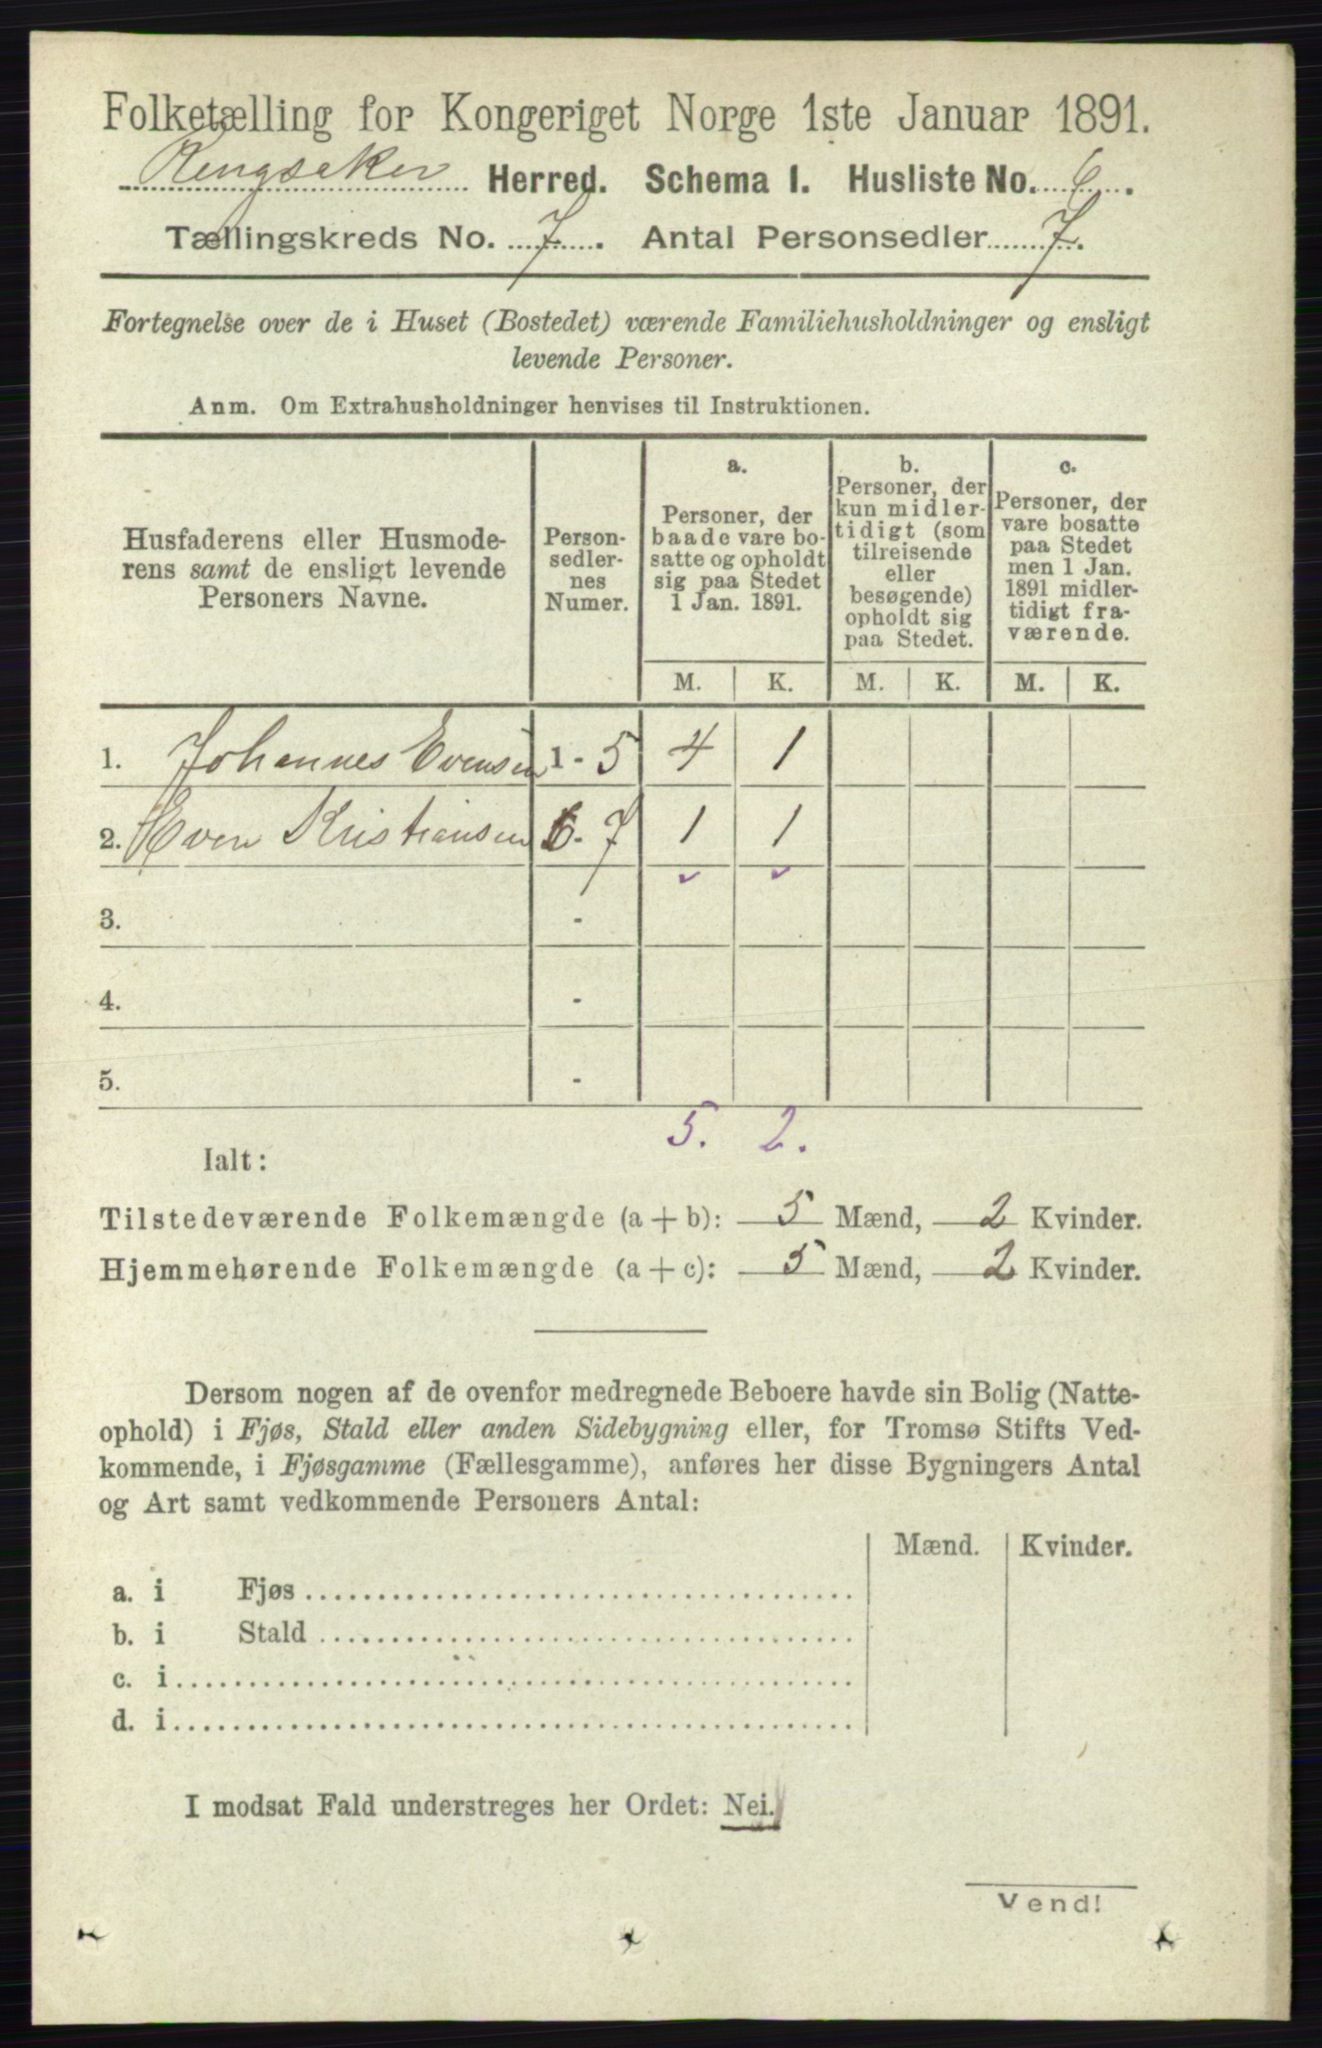 Folketælling for Kongeriget Norge 1ste Januar 1891.
Ringsaker Herred. Schema I. Husliste No. 6.
Tællingskreds No. 7. Antal Personsedler 7.
Fortegnelse over de i Huset (Bostedet) værende Familiehusholdninger og ensligt
levende Personer.
Anm. Om Extrahusholdninger henvises til Instruktionen.
Husfaderens eller Husmode-
rens samt de ensligt levende
Personers Navne.
Person-
sedler-
nes
Numer.
a.
Personer, der
baade vare bo-
satte og opholdt
sig paa Stedet
1 Jan. 1891.
b.
Personer, der
kun midler-
tidigt (som
tilreisende
eller
besøgende)
opholdt sig
paa Stedet.
c.
Personer, der
vare bosatte
paa Stedet
men 1 Jan.
1891 midler-
tidigt fra-
værende.
M. K. M. K. M. K.
1. Johannes Evensen 1 - 5 4 1
2. Even Kristiansen 6 - 7 1 1
3. -
4. -
5. -
5. 2.
Ialt:
Tilstedeværende Folkemængde (a + b): 5 Mænd, 2 Kvinder.
Hjemmehørende Folkemængde (a + c): 5 Mænd, 2 Kvinder.
Dersom nogen af de ovenfor medregnede Beboere havde sin Bolig (Natte-
ophold) i Fjøs, Stald eller anden Sidebygning eller, for Tromsø Stifts Ved-
kommende, i Fjøsgamme (Fællesgamme), anføres her disse Bygningers Antal
og Art samt vedkommende Personers Antal:
Mænd. Kvinder.
a. i Fjøs
b. i Stald
c. i
d. i
I modsat Fald understreges her Ordet: Nei.
Vend!